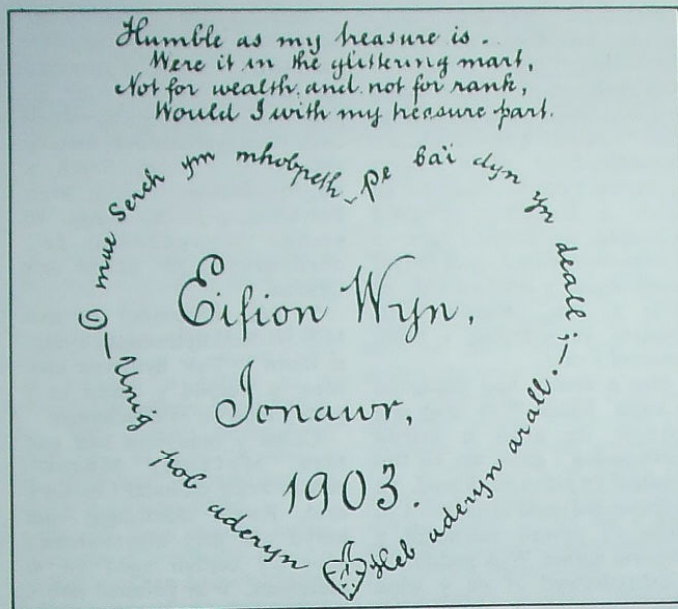 Humble as my treasure is.
Were it in the glittering mart,
Not for wealth, and not for rank,
Would I with my treasure part.
O mae Serch ym mhobpeth – pe bai dyn yn deall; –
Unig pob aderyn
Heb aderyn arall. –
Eifion Wyn,
Ionawr,
1903.